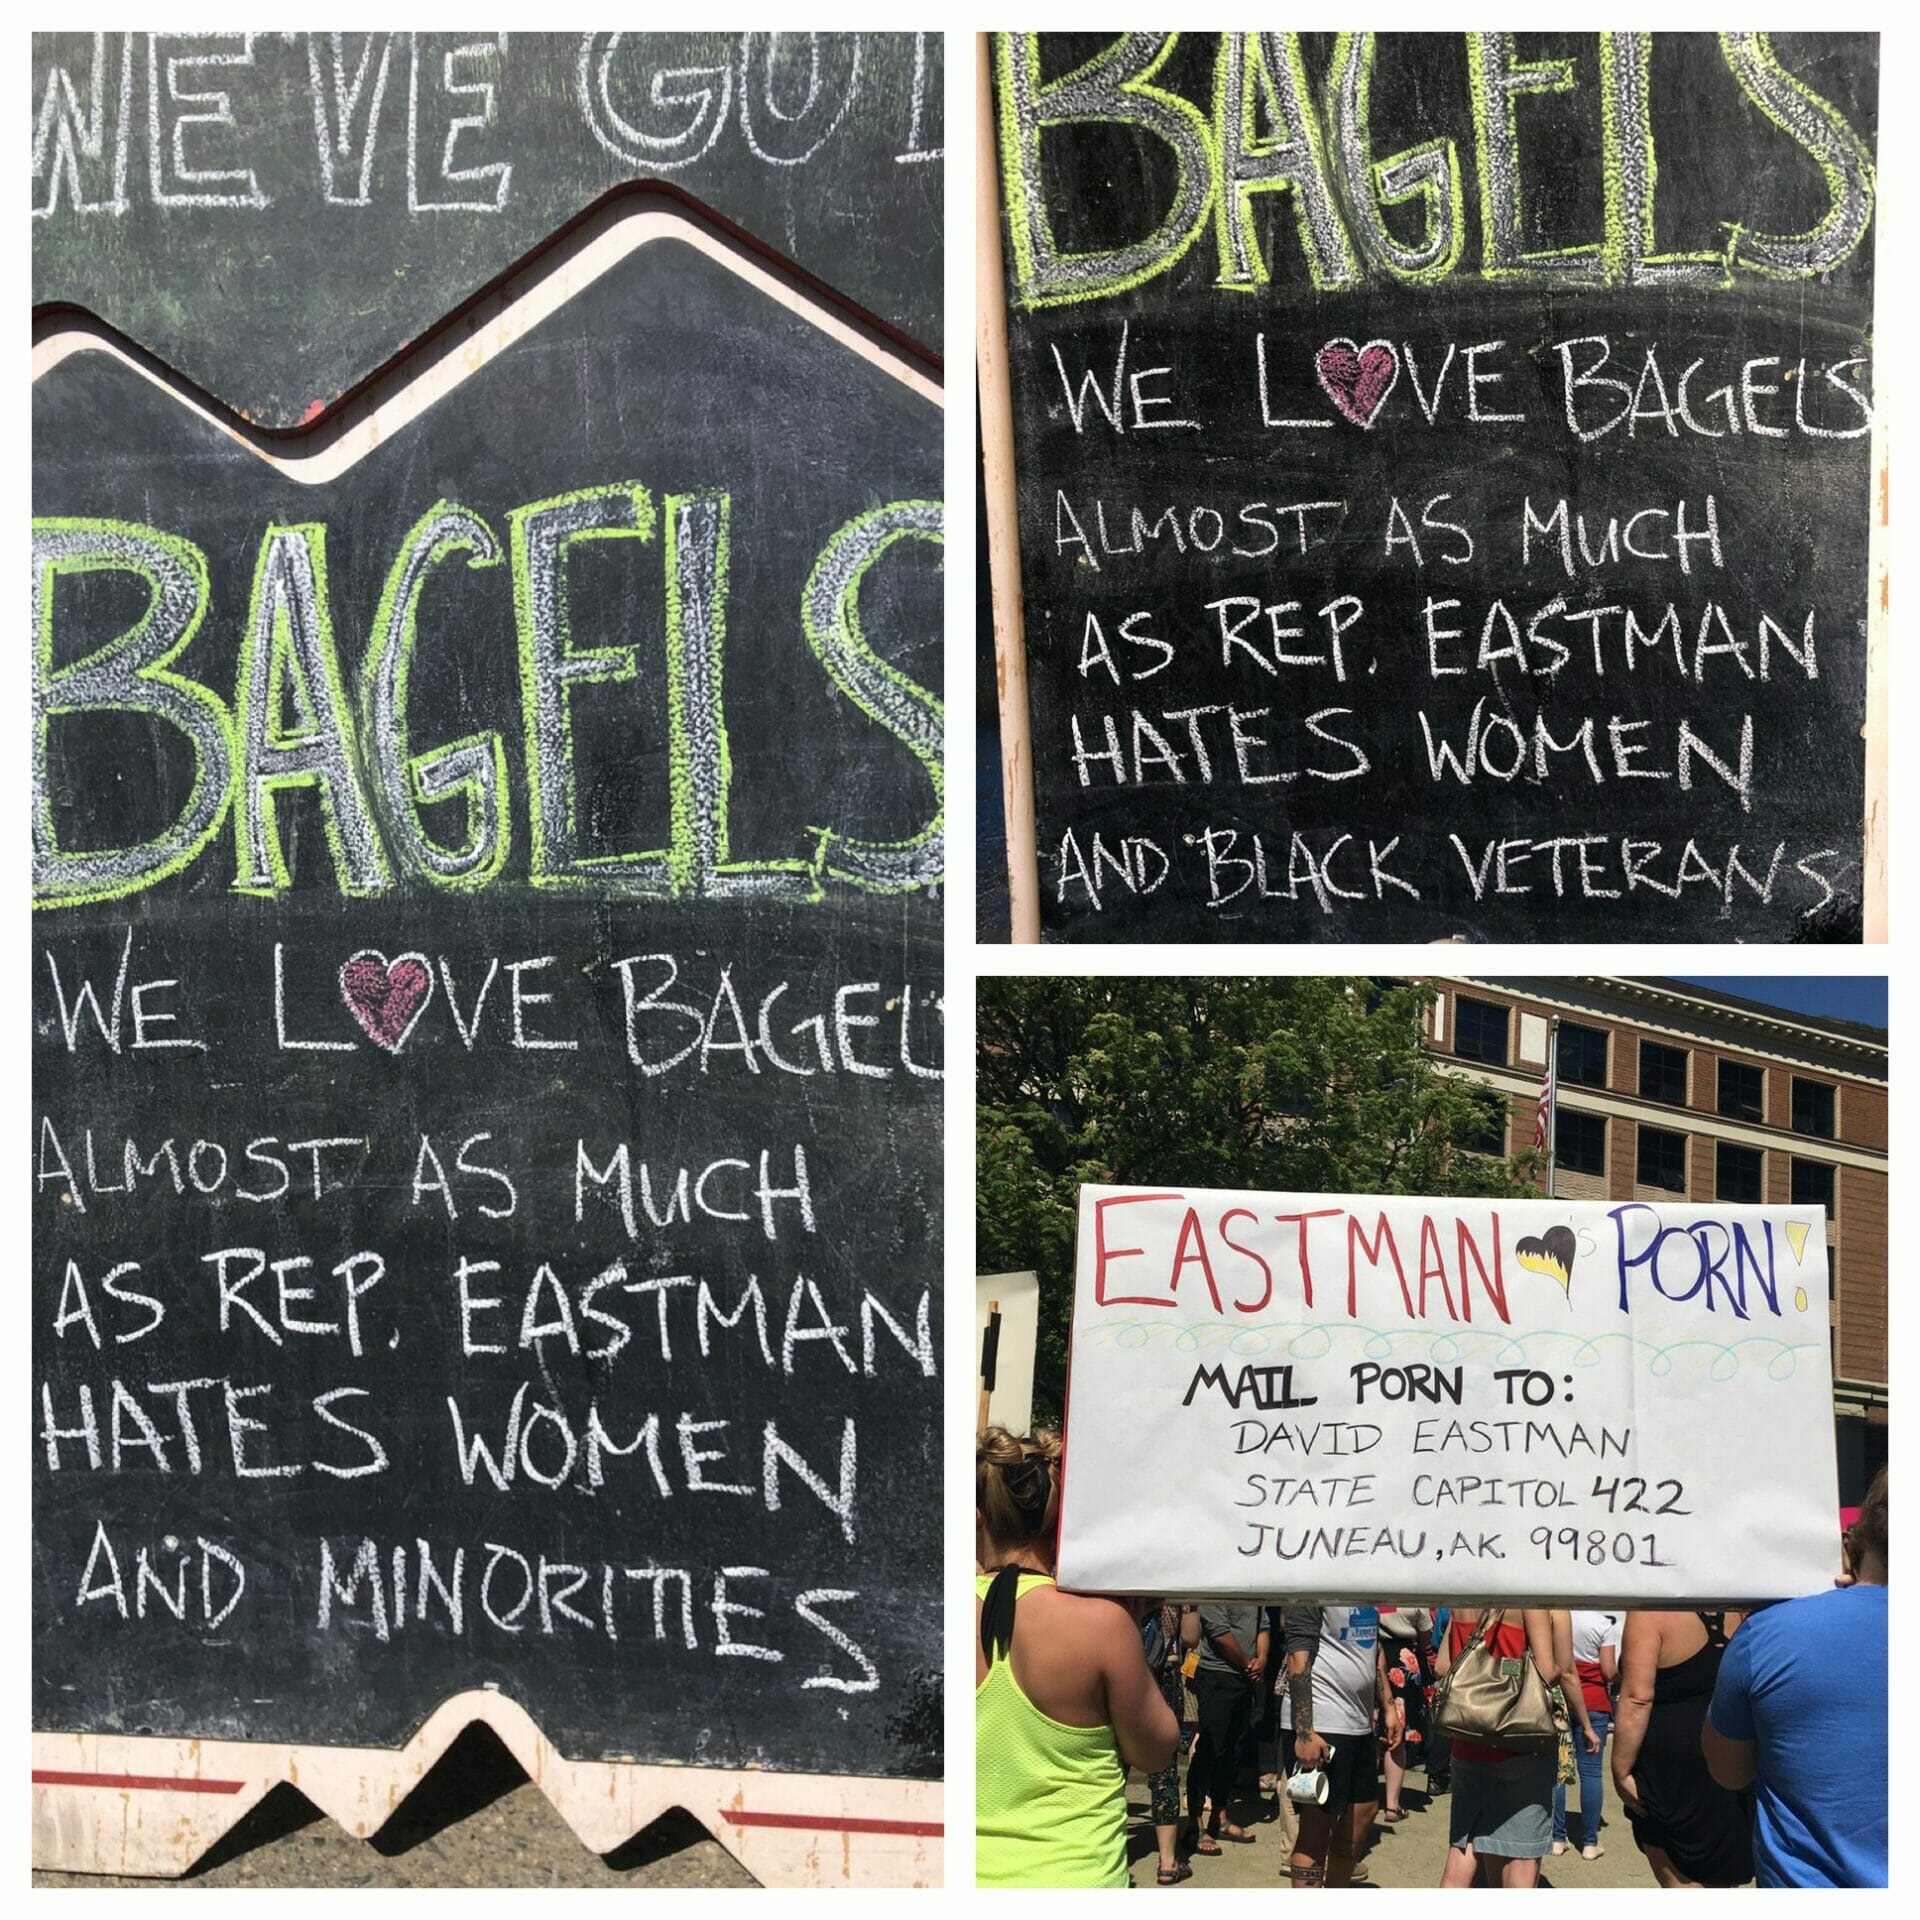 WE'VE GOT
BAGELS
WE LOVE BAGELS
ALMOST AS MUCH
AS REP. EASTMAN
HATES WOMEN
AND MINORITIES
BAGELS
WE LOVE BAGELS
ALMOST AS MUCH
AS REP. EASTMAN
HATES WOMEN
AND BLACK VETERANS
EASTMAN 🖤'S PORN!
MAIL PORN TO:
DAVID EASTMAN
STATE CAPITOL 422
JUNEAU, AK. 99801